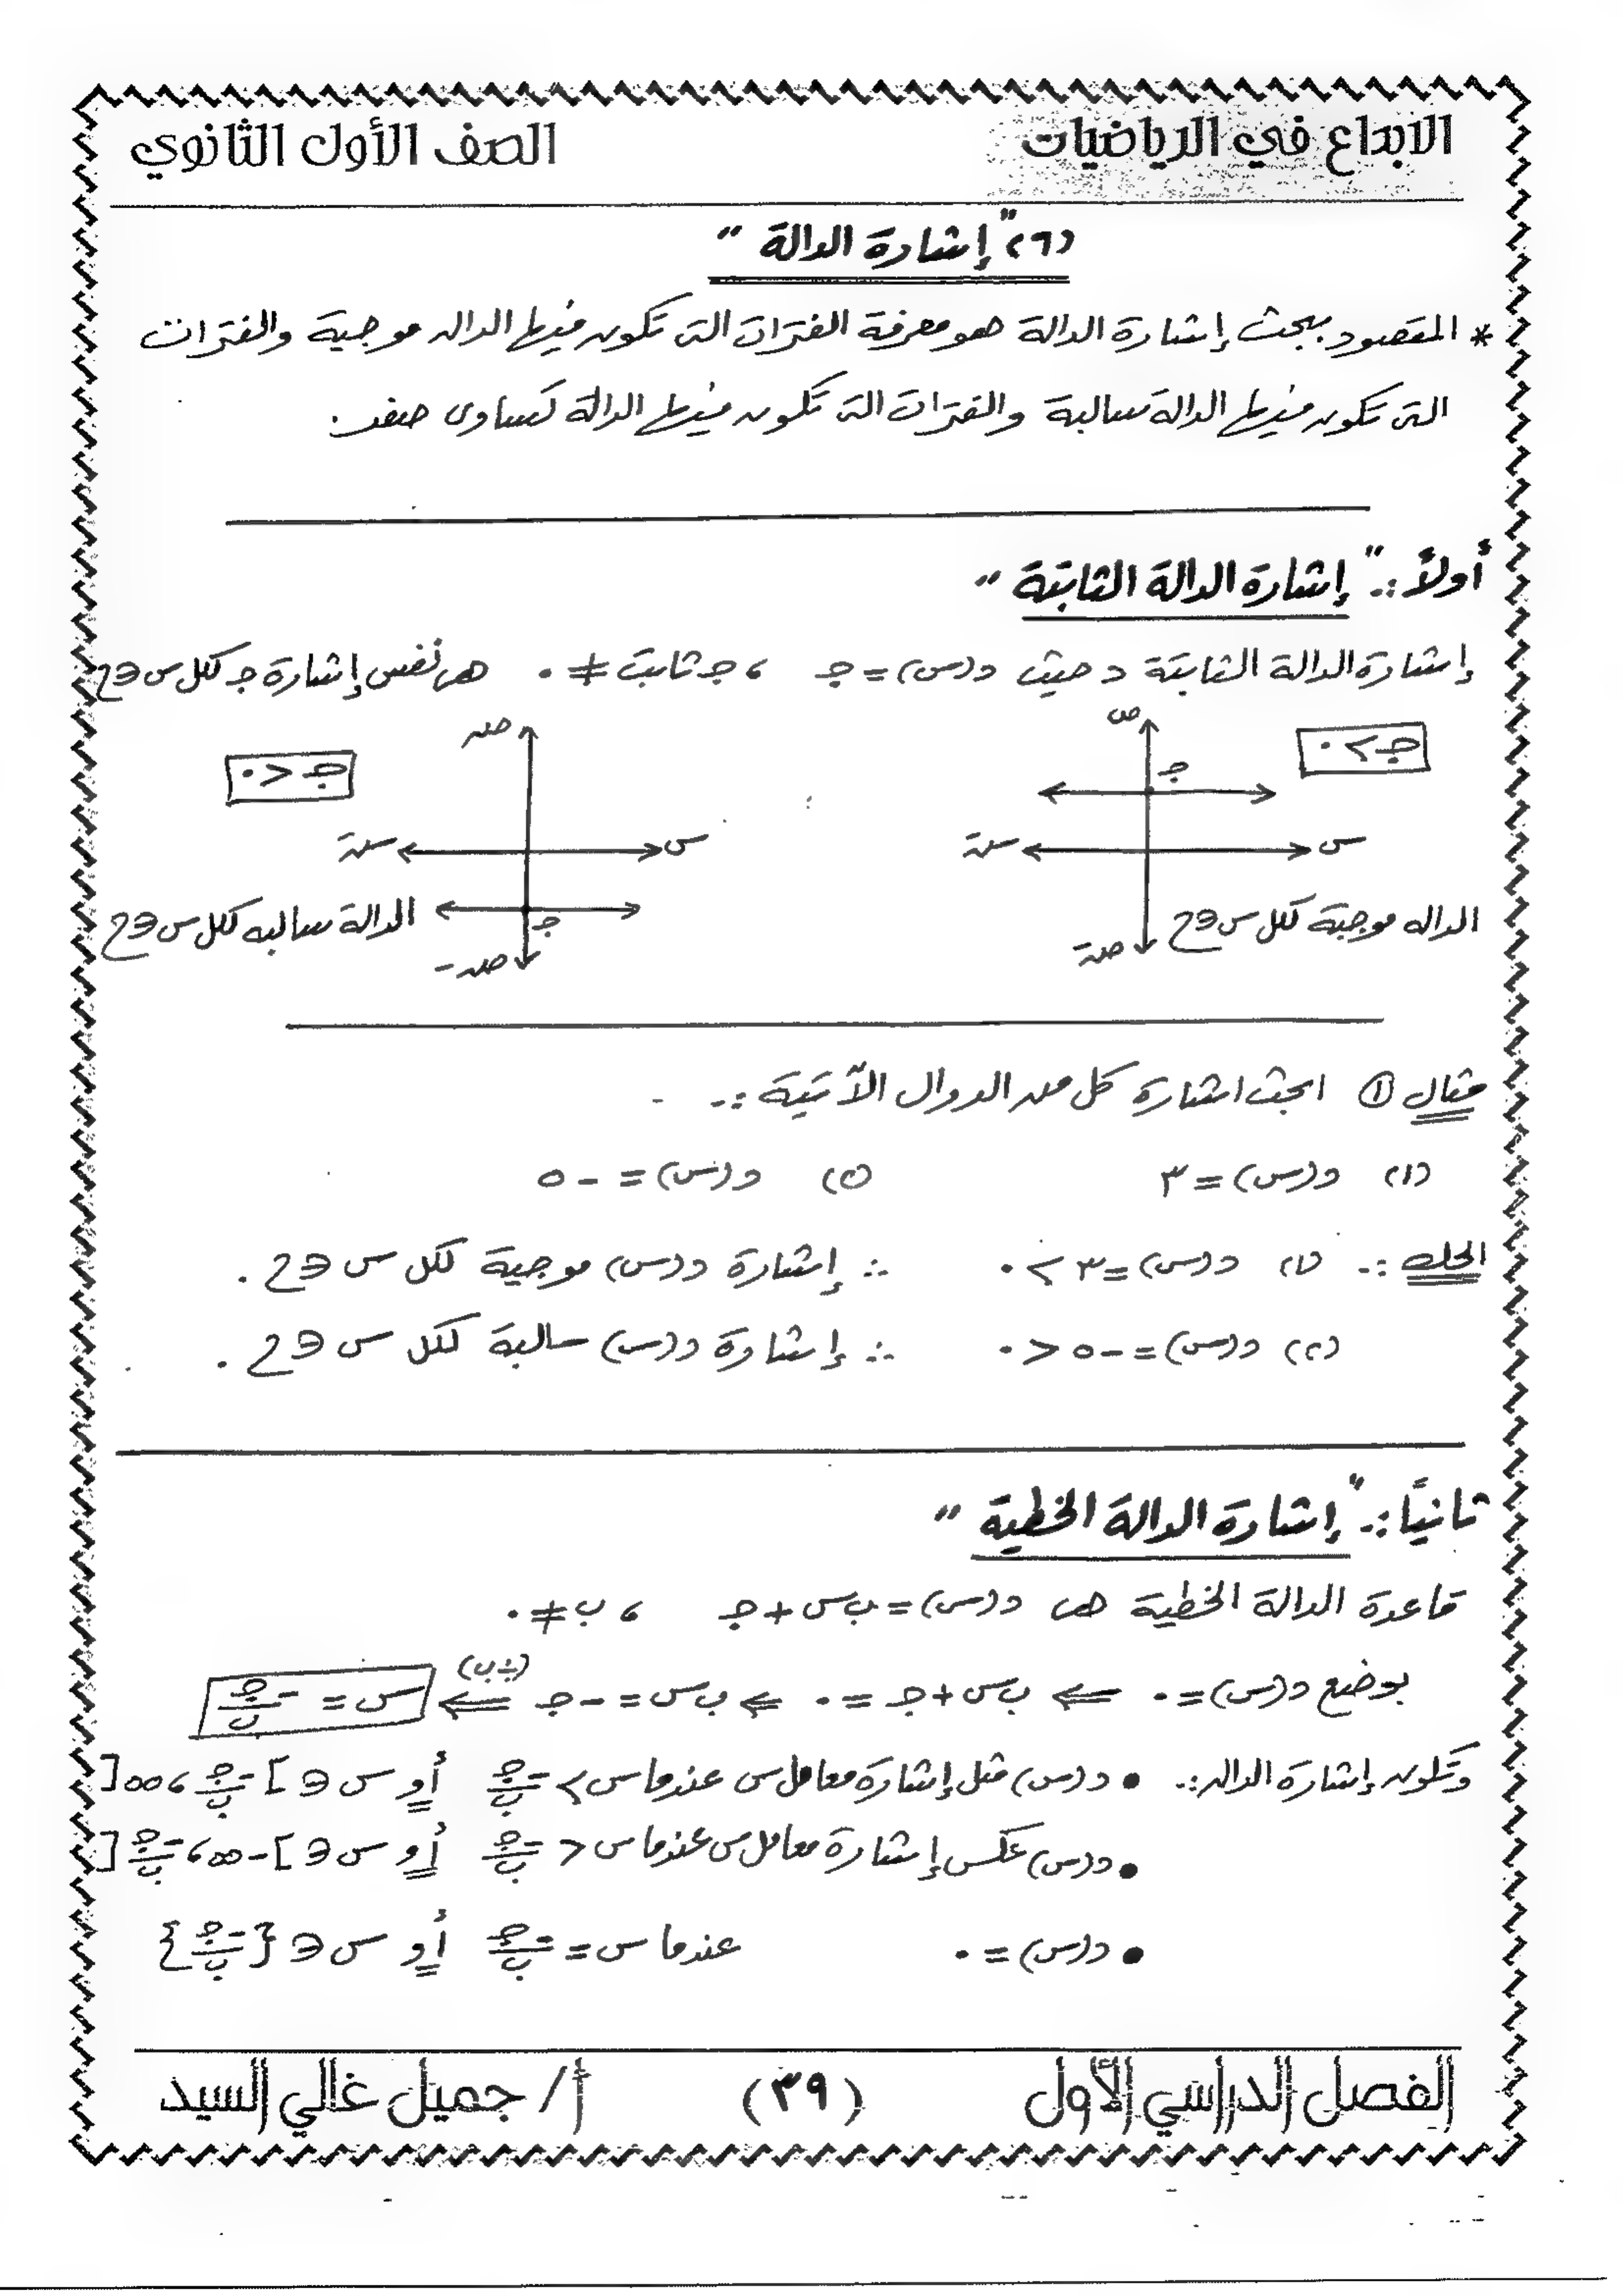 الابداع في الرياضيات
الصف الأول الثانوي
(٦) "إشارة الدالة"
* المقصود ببحث إشارة الدالة هو معرفة الفترات التى تكون فيها الداله موجبة والفترات
التى تكون فيها الدالة سالبة والفترات التى تكون فيها الدالة تساوى صفر.
أولاً :. "إشارة الدالة الثابتة"
إشارة الدالة الثابتة د حيث د(س) = جـ ، جـ ثابت ≠ ٠ هى نفس إشارة جـ لكل س ∈ ح
جـ > ٠
ص
جـ
س
سَ
صَ
الداله موجبة لكل س ∈ ح
جـ < ٠
ص
س
سَ
جـ
صَ
الدالة سالبه لكل س ∈ ح
مثال ① ابحث اشارة كل من الدوال الآتية :.
(١) د(س) = ٣ (٢) د(س) = -٥
الحل :. (١) د(س) = ٣ > ٠ ∴ إشارة د(س) موجبة لكل س ∈ ح .
(٢) د(س) = -٥ < ٠ ∴ إشارة د(س) سالبة لكل س ∈ ح .
ثانيًا :. "إشارة الدالة الخطية"
قاعدة الدالة الخطية هى د(س) = ب س + جـ ، ب ≠ ٠
بوضع د(س) = ٠ ⇐ ب س + جـ = ٠ ⇐ ب س = -جـ ⇐ (÷ب) س = -جـ/ب
وتكون إشارة الداله :. • د(س) مثل إشارة معامل س عندما س > -جـ/ب أو س ∈ ]-جـ/ب ، ∞[
• د(س) عكس إشارة معامل س عندما س < -جـ/ب أو س ∈ ]-∞ ، -جـ/ب[
• د(س) = ٠ عندما س = -جـ/ب أو س ∈ {-جـ/ب}
الفصل الدراسي الأول
(٣٩)
أ/ جميل غالي السيد